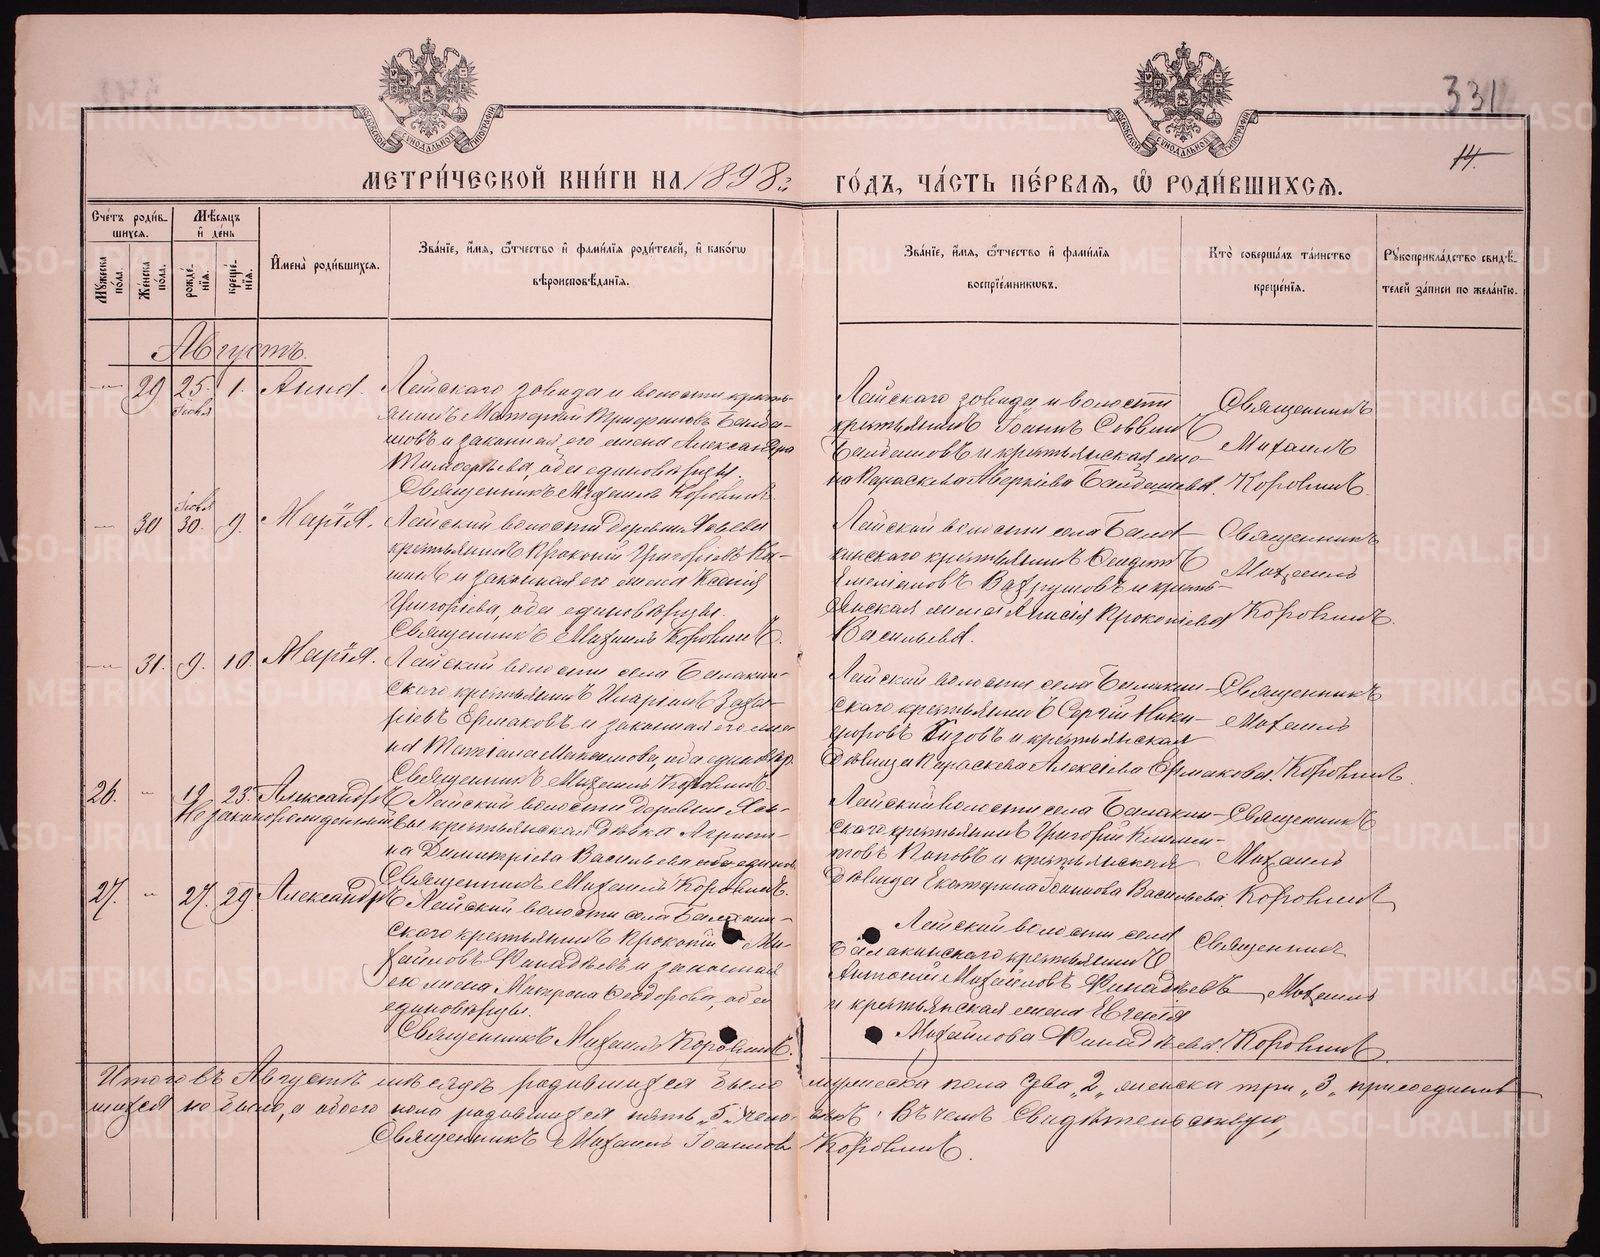 331
14
МОСКОВСКОЙ СѴНОДАЛЬНОЙ ТИПОГРАФІИ
МОСКОВСКОЙ СѴНОДАЛЬНОЙ ТИПОГРАФІИ
МЕТРИ́ЧЕСКОЙ КНИ́ГИ НА 1898й ГО́ДЪ, ЧА́СТЬ ПЕ́РВАѦ, Ѡ҆ РОДИ́ВШИХСѦ.
Сче́тъ роди́вшихсѧ.
Мꙋ́жеска по́ла.
Же́нска по́ла.
Мѣ́сѧцъ и҆ де́нь
рожде́нїѧ.
креще́нїѧ.
И҆мена̀ роди́вшихсѧ.
Зва́нїе, и҆́мѧ, ѻ҆́тчество и҆ фами́лїѧ роди́телей, и҆ како́гѡ вѣроисповѣ́данїѧ.
Зва́нїе, и҆́мѧ, ѻ҆́тчество и҆ фами́лїѧ воспрїе́мникѡвъ.
Кто̀ соверша́лъ та́инство креще́нїѧ.
Рꙋкоприкла́дство свидѣ́телей за́писи по жела́нїю.
Августъ.
29 25. Іюля 1. Анна.
Лайскаго завода и волости кресть-
янинъ Трифановъ Байда-
шовъ и законная его жена Александра
Тимофеева, оба единовѣрцы.
Священникъ Михаилъ Коровинъ
Лайскаго завода и волости
крестьянинъ Іоаннъ Саввинъ
Байдашовъ и крестьянская же-
на Параскева Аверкіева Байдашева.
Священникъ
Михаилъ
Коровинъ.
30 Іюля 30. 9. Марія.
Лайской волости деревни
крестьянинъ Прокопій Григорьевъ
и законная его жена Ксенія
Григорьева, оба единовѣрцы.
Священникъ Михаилъ Коровинъ.
Лайской волости села Балакинскаго крестьянинъ
Емельяновъ Вахрушовъ и кресть-
янская жена Анисія Прокопіева
Васильева.
Священникъ
Михаилъ
Коровинъ.
31. 9. 10. Марія.
Лайской волости села Балакин-
скаго крестьянинъ Иларіонъ Заха-
ріевъ Ермаковъ и законная его же-
на Татіана оба единовѣр.
Священникъ Михаилъ Коровинъ.
Лайской волости села Балакин-
скаго крестьянинъ Сергій Ники-
форовъ и крестьянская
дѣвица Параскева Алексіева Ермакова.
Священникъ
Михаилъ
Коровинъ
26. 19. 23. Александръ
Незаконнорожденный
Лайской волости деревни
крестьянская дѣвка Агрипи-
на Димитріева Васильева
Священникъ Михаилъ Коровинъ.
Лайской волости села Балакин-
скаго крестьянинъ Григорій Климен-
товъ Поповъ и крестьянская
дѣвица Екатерина Іоаннова Васильева.
Священникъ
Михаилъ
Коровинъ
27. 27. 29. Александръ
Лайской волости села Балакин-
скаго крестьянинъ Прокопій Ми-
хайловъ Финадѣевъ и законная
его жена Матрона Ѳеодорова, оба
единовѣрцы.
Священникъ Михаилъ Коровинъ.
Лайской волости села
Балакинскаго крестьянинъ
Антоній Михайловъ Финадѣевъ
и крестьянская жена Евгенія
Михайлова Финадѣева.
Священникъ
Михаилъ
Коровинъ.
Итого въ Августѣ мѣсяцѣ родившихся было мужеска пола два „2„ женска три „3„ присоединив-
шихся не было, а обоего пола родившихся пять „5„ чело- вѣкъ. Въ чемъ свидѣтельствую,
Священникъ Михаилъ Іоанновъ Коровинъ.
METRIKI.GASO-URAL.RU